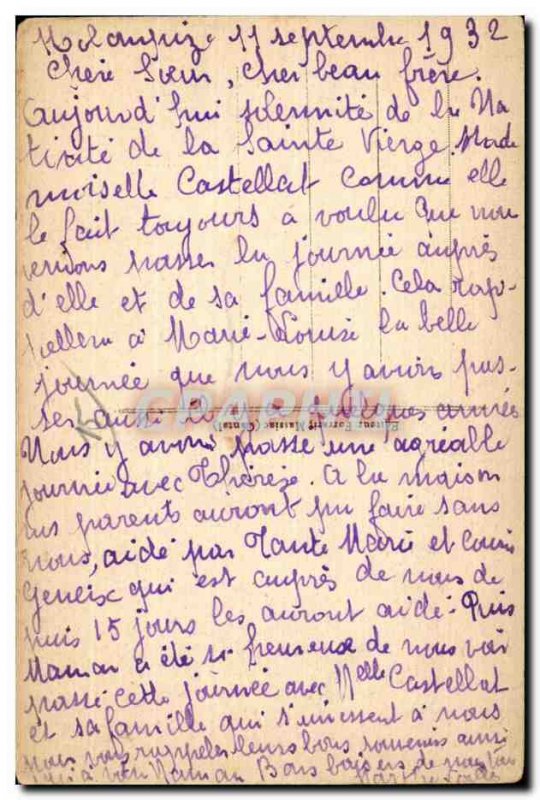 11 septembre 1932
Chère Sœur, Cher beau frère.
Aujourd'hui solennité de la Na
tivité de la Sainte Vierge. Made
moiselle Castellat comme elle
le fait toujours a voulu que nous
venions passer la journée auprès
d'elle et de sa famille. Cela rap-
pellera à Marie-Louise la belle
journée que nous y avions pas-
sés aussi il y a quelques années
Nous y avons passé une agréable
journée avec Thérèse. A la maison
nos parents auront pu faire sans
nous, aidé par Tante Marie et Cousin
Geneix qui est auprès de nous de
puis 15 jours les auront aidé. Puis
Maman a été si heureuse de nous voir
passé cette journée avec Melle Castellat
et sa famille qui s'unissent à nous
pour vous rappeler leurs bons souvenirs ainsi
qu'à Maman Bons baisers de nous
Editeur Massiac (Cantal)
CPAPHIL